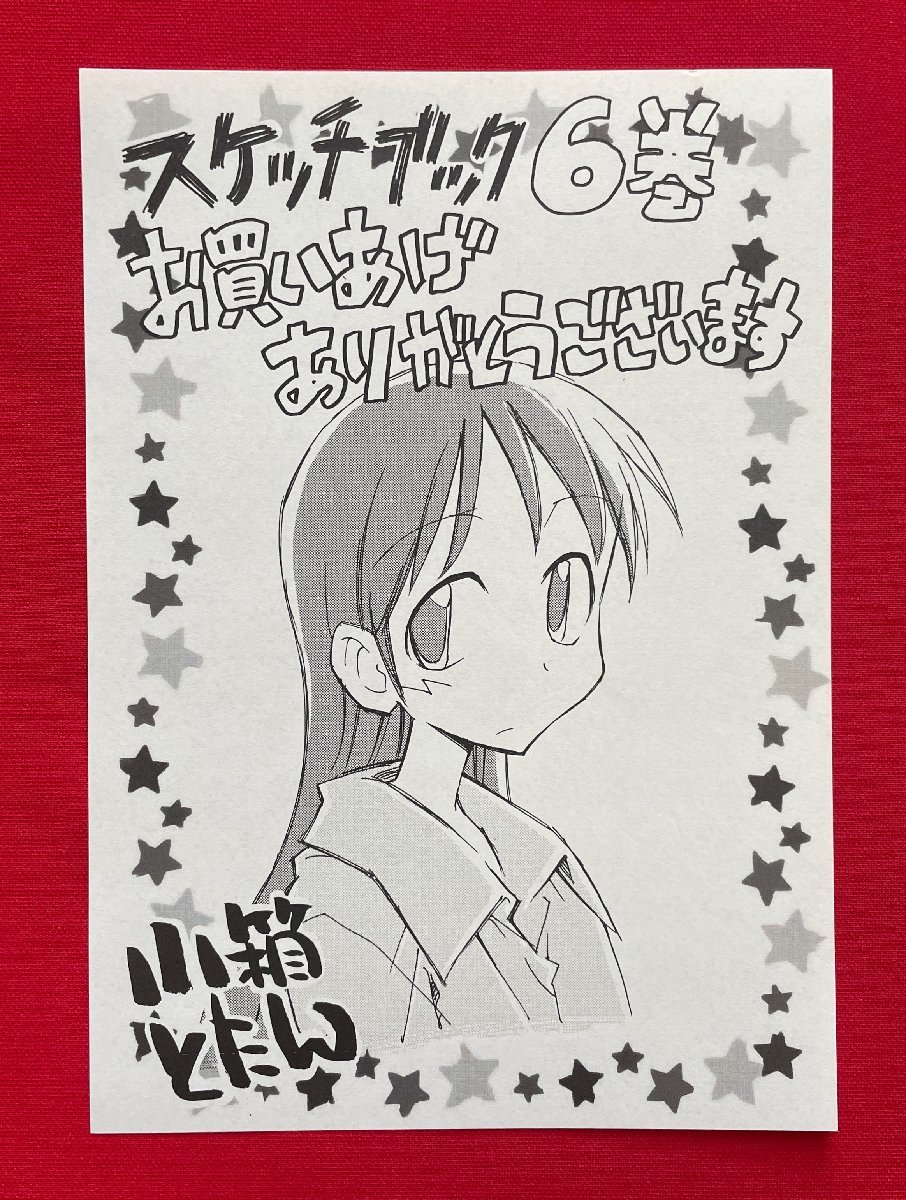 スケッチブック6巻
お買いあげ
ありがとうございます
小箱
とたん